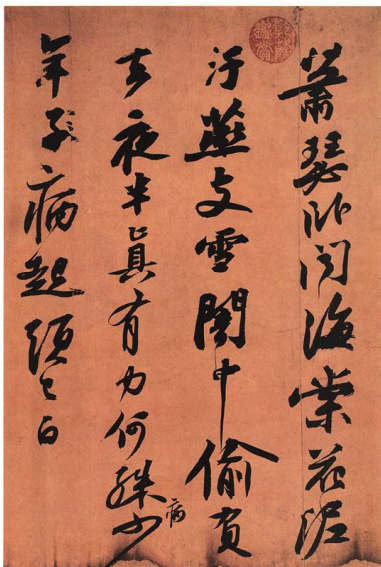 蕭瑟臥聞海棠花泥
汙燕支雪闇中偷負
去夜半真有力何殊少
病
年子病起頭已白